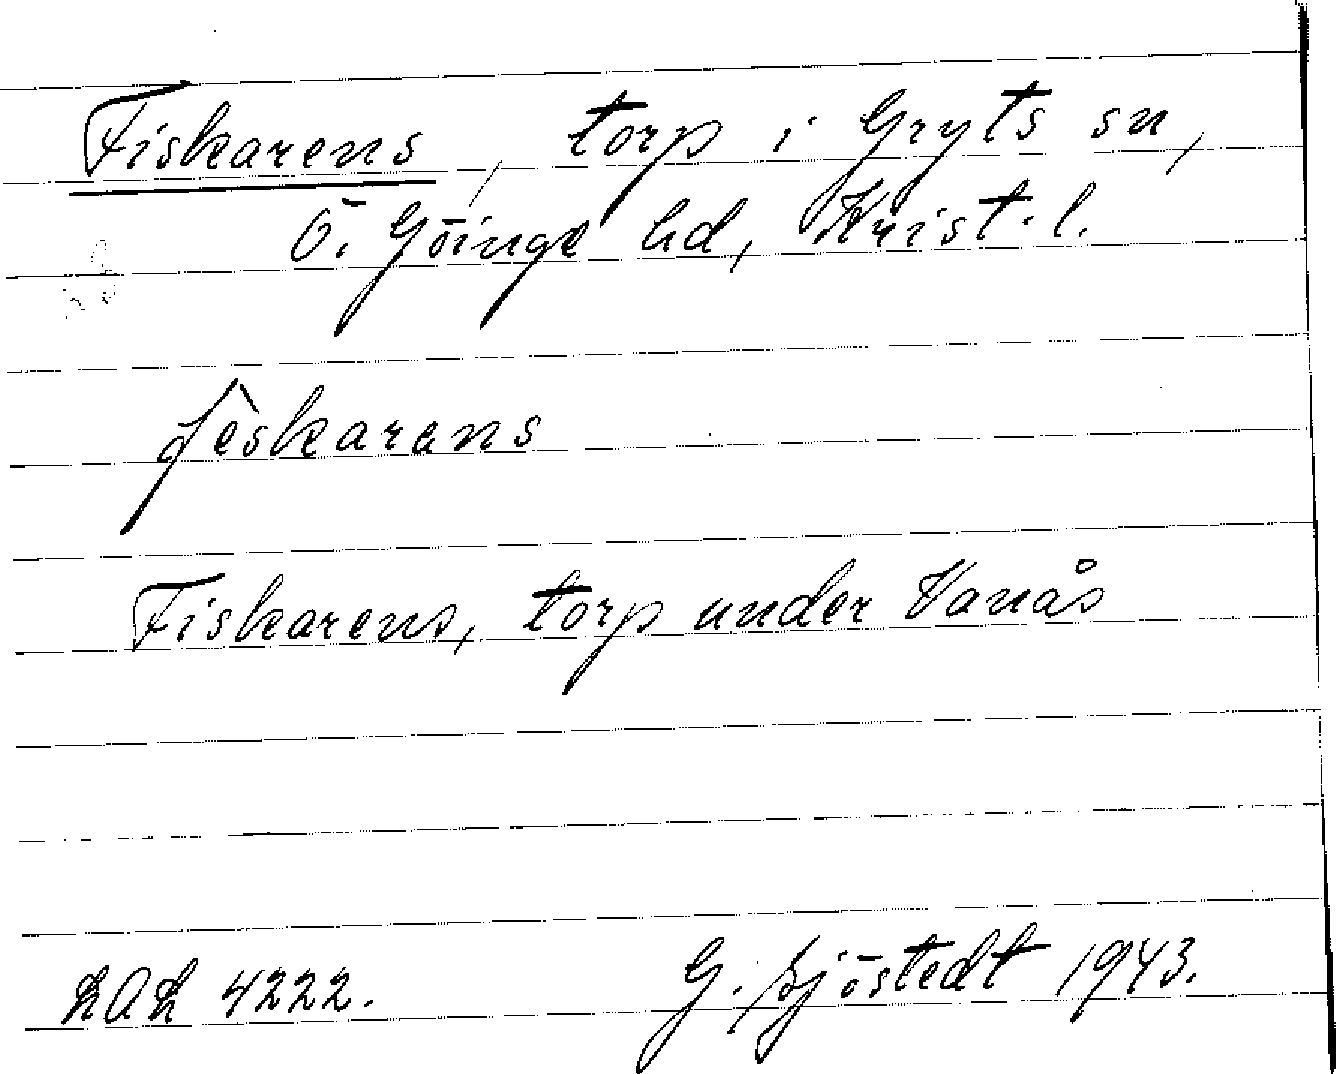 Fiskarens, torp i Gryts sn,
Ö. Göinge hd, Krist. l.
fèskarans
Fiskarens, torp under Vanås
LAL 4222. G. Sjöstedt 1943.